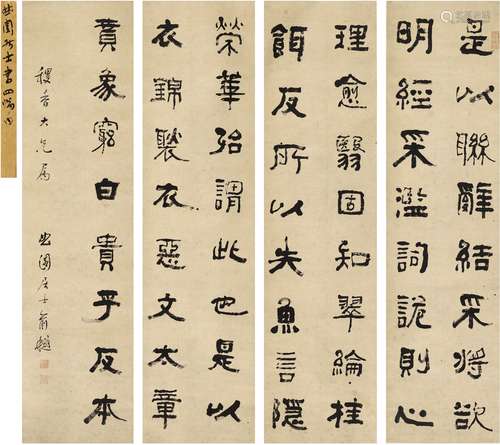 是以聯辭結采將欲
明經采濫詞詭則心
理愈翳固知翠綸桂
餌反所以失魚言隱
榮華殆謂此也是以
衣錦褧衣惡文太章
賁象窮白貴乎反本
稷香大兄屬
曲園居士俞樾
曲園居士書四幅